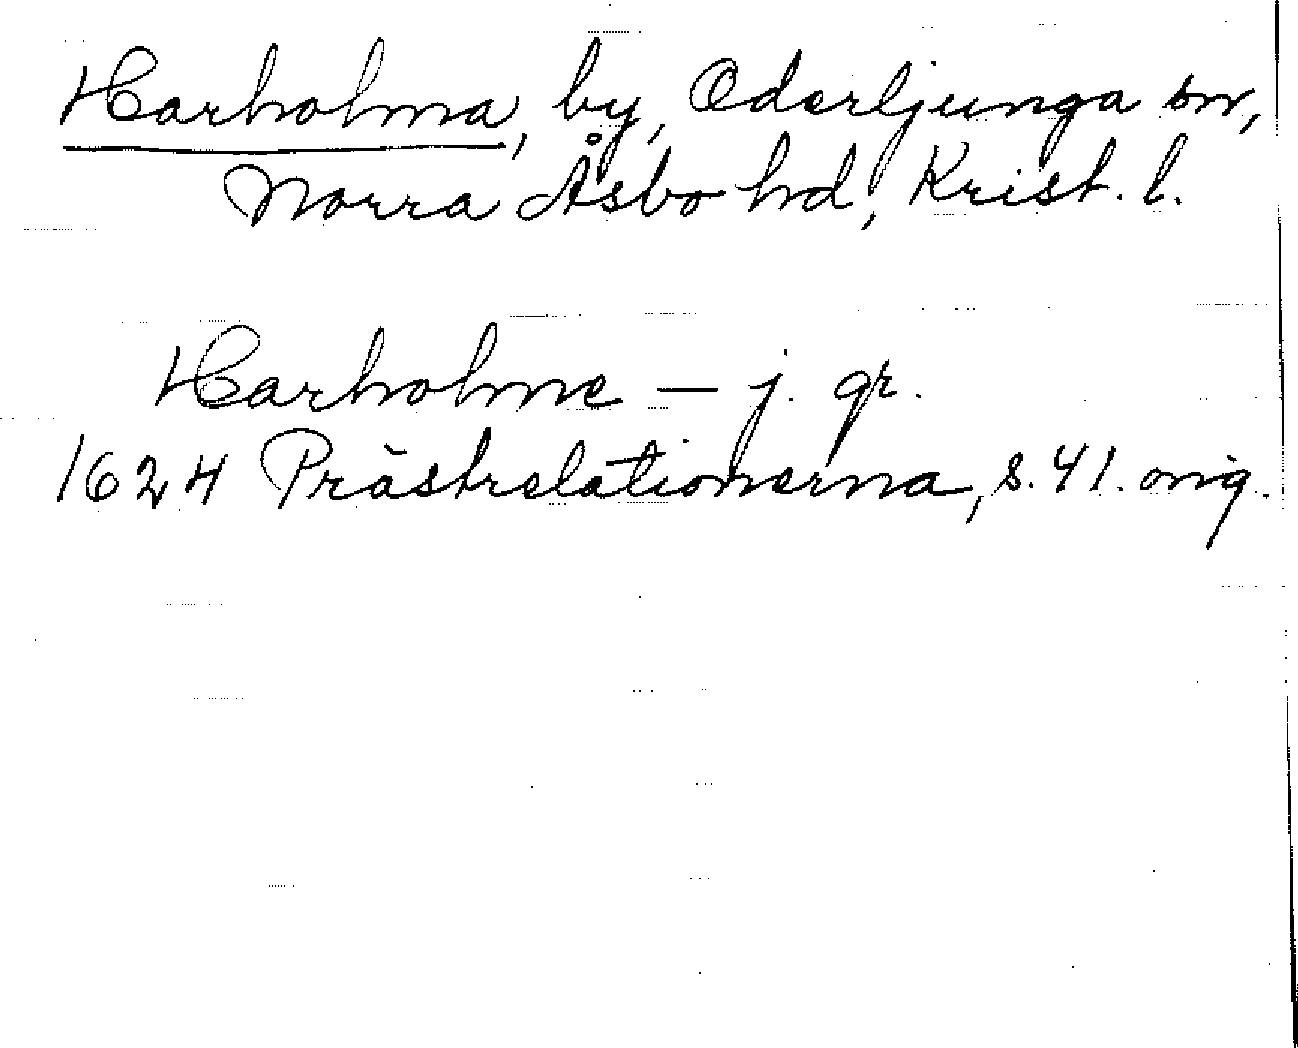 Harholma, by, Oderljunga sn,
Norra Åsbo hd, Krist. l.
Harholme — j. gr.
1624 Prästrelationerna, s. 41. orig.